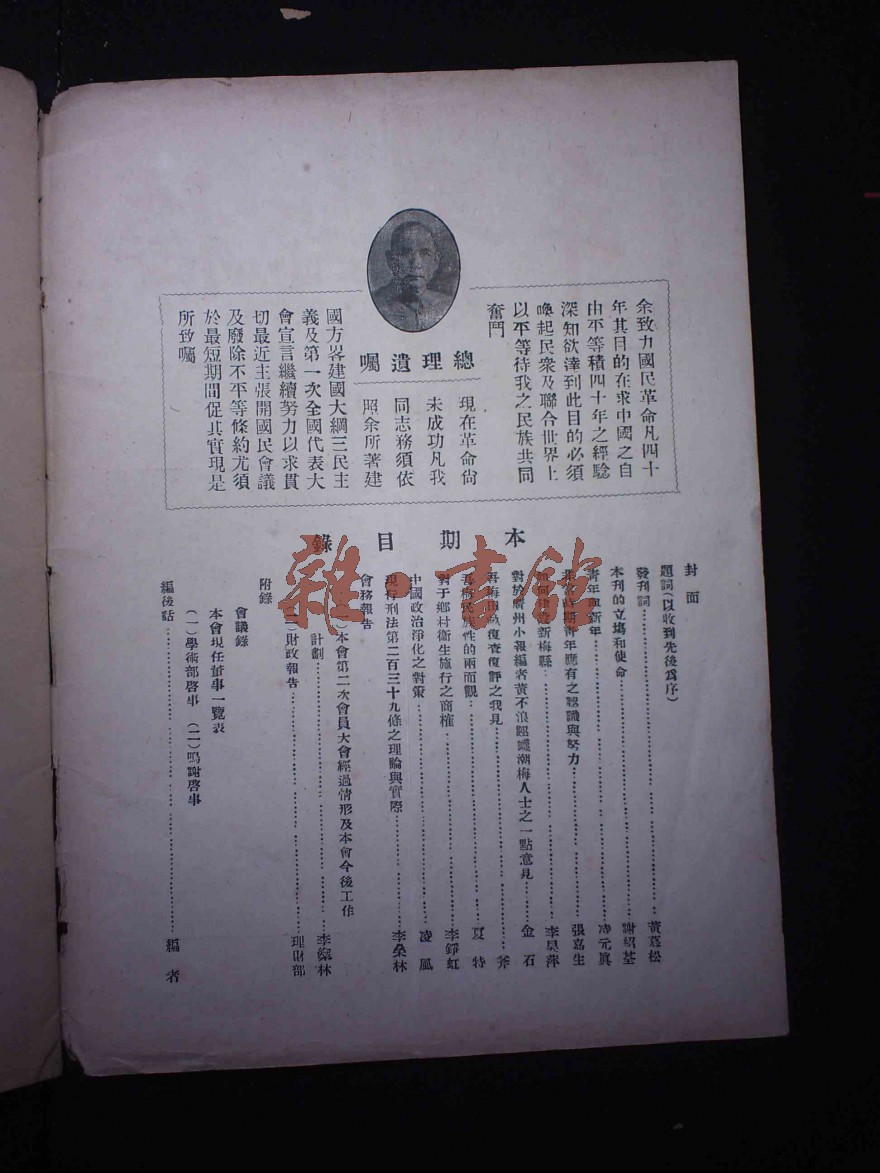 總理遺囑
余致力國民革命凡四十
年其目的在求中國之自
由平等積四十年之經驗
深知欲達到此目的必須
喚起民衆及聯合世界上
以平等待我之民族共同
奮鬥
現在革命尙
未成功凡我
同志務須依
照余所著建
國方畧建國大綱三民主
義及第一次全國代表大
會宣言繼續努力以求貫
切最近主張開國民會議
及廢除不平等條約尤須
於最短期間促其實現是
所致囑
本期目錄
封面
題詞(以收到先後爲序)
發刊詞 黃 松
本刊的立場和使命 謝紹
靑年與新年 凌元眞
時期靑年應有之認識與努力 張嘉生
新梅縣 李 萍
對於廣州小報編者黃不浪 潮梅人士之一點意見 金石
復查復評之我見 斧
民族性的兩面觀 夏特
對于鄉村衛生施行之商榷 李錚虹
中國政治淨化之對策 凌風
現行刑法第二百三十九條之理論與實際 李榮林
會務報告
(一)本會第二次會員大會經過情形及本會今後工作
計劃 李 林
(二)財政報告 理財部
附錄
會議錄
本會現任董事一覽表
(一)學術部啓事 (二)鳴謝啓事
編後話 編者
雜·書館